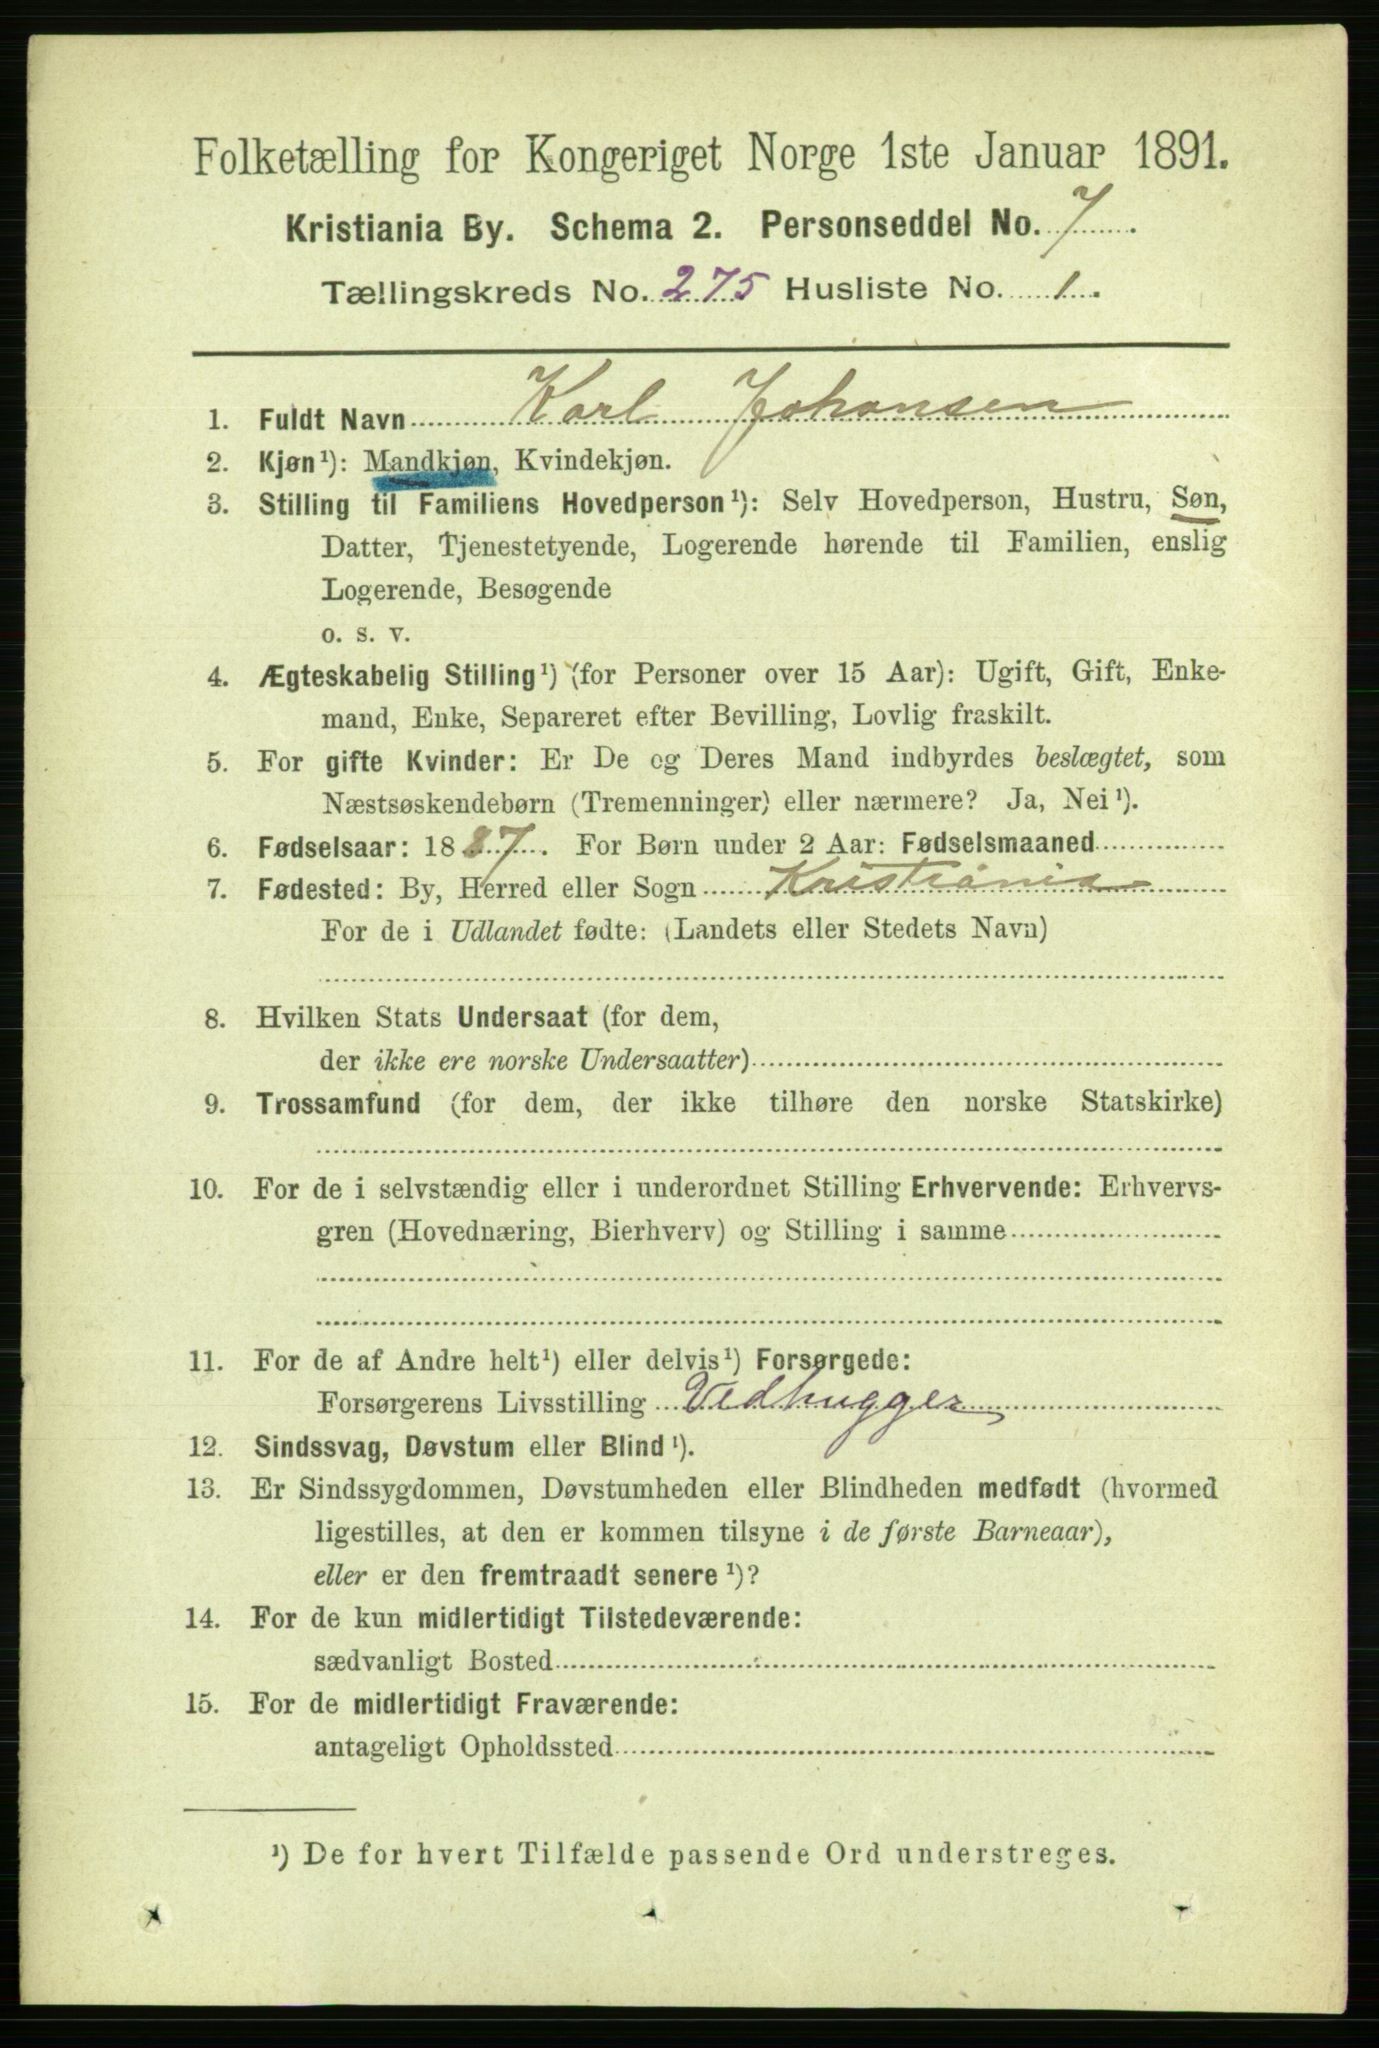 Folketælling for Kongeriget Norge 1ste Januar 1891.
Kristiania By. Schema 2. Personseddel No. 7
Tællingskreds No. 275 Husliste No. 1.
1. Fuldt Navn Karl Johansen
2. Kjøn¹): Mandkjøn, Kvindekjøn.
3. Stilling til Familiens Hovedperson¹): Selv Hovedperson, Hustru, Søn,
Datter, Tjenestetyende, Logerende hørende til Familien, enslig
Logerende, Besøgende
o. s. v.
4. Ægteskabelig Stilling¹) (for Personer over 15 Aar): Ugift, Gift, Enke-
mand, Enke, Separeret efter Bevilling, Lovlig fraskilt.
5. For gifte Kvinder: Er De og Deres Mand indbyrdes beslægtet, som
Næstsøskendebørn (Tremenninger) eller nærmere? Ja, Nei¹).
6. Fødselsaar: 1887. For Børn under 2 Aar: Fødselsmaaned
7. Fødested: By, Herred eller Sogn Kristiania
For de i Udlandet fødte: (Landets eller Stedets Navn)
8. Hvilken Stats Undersaat (for dem,
der ikke ere norske Undersaatter)
9. Trossamfund (for dem, der ikke tilhøre den norske Statskirke)
10. For de i selvstændig eller i underordnet Stilling Erhvervende: Erhvervs-
gren (Hovednæring, Bierhverv) og Stilling i samme
11. For de af Andre helt¹) eller delvis¹) Forsørgede:
Forsørgerens Livsstilling Vedhugger
12. Sindssvag, Døvstum eller Blind¹).
13. Er Sindssygdommen, Døvstumheden eller Blindheden medfødt (hvormed
ligestilles, at den er kommen tilsyne i de første Barneaar),
eller er den fremtraadt senere¹)?
14. For de kun midlertidigt Tilstedeværende:
sædvanligt Bosted
15. For de midlertidigt Fraværende:
antageligt Opholdssted
¹) De for hvert Tilfælde passende Ord understreges.